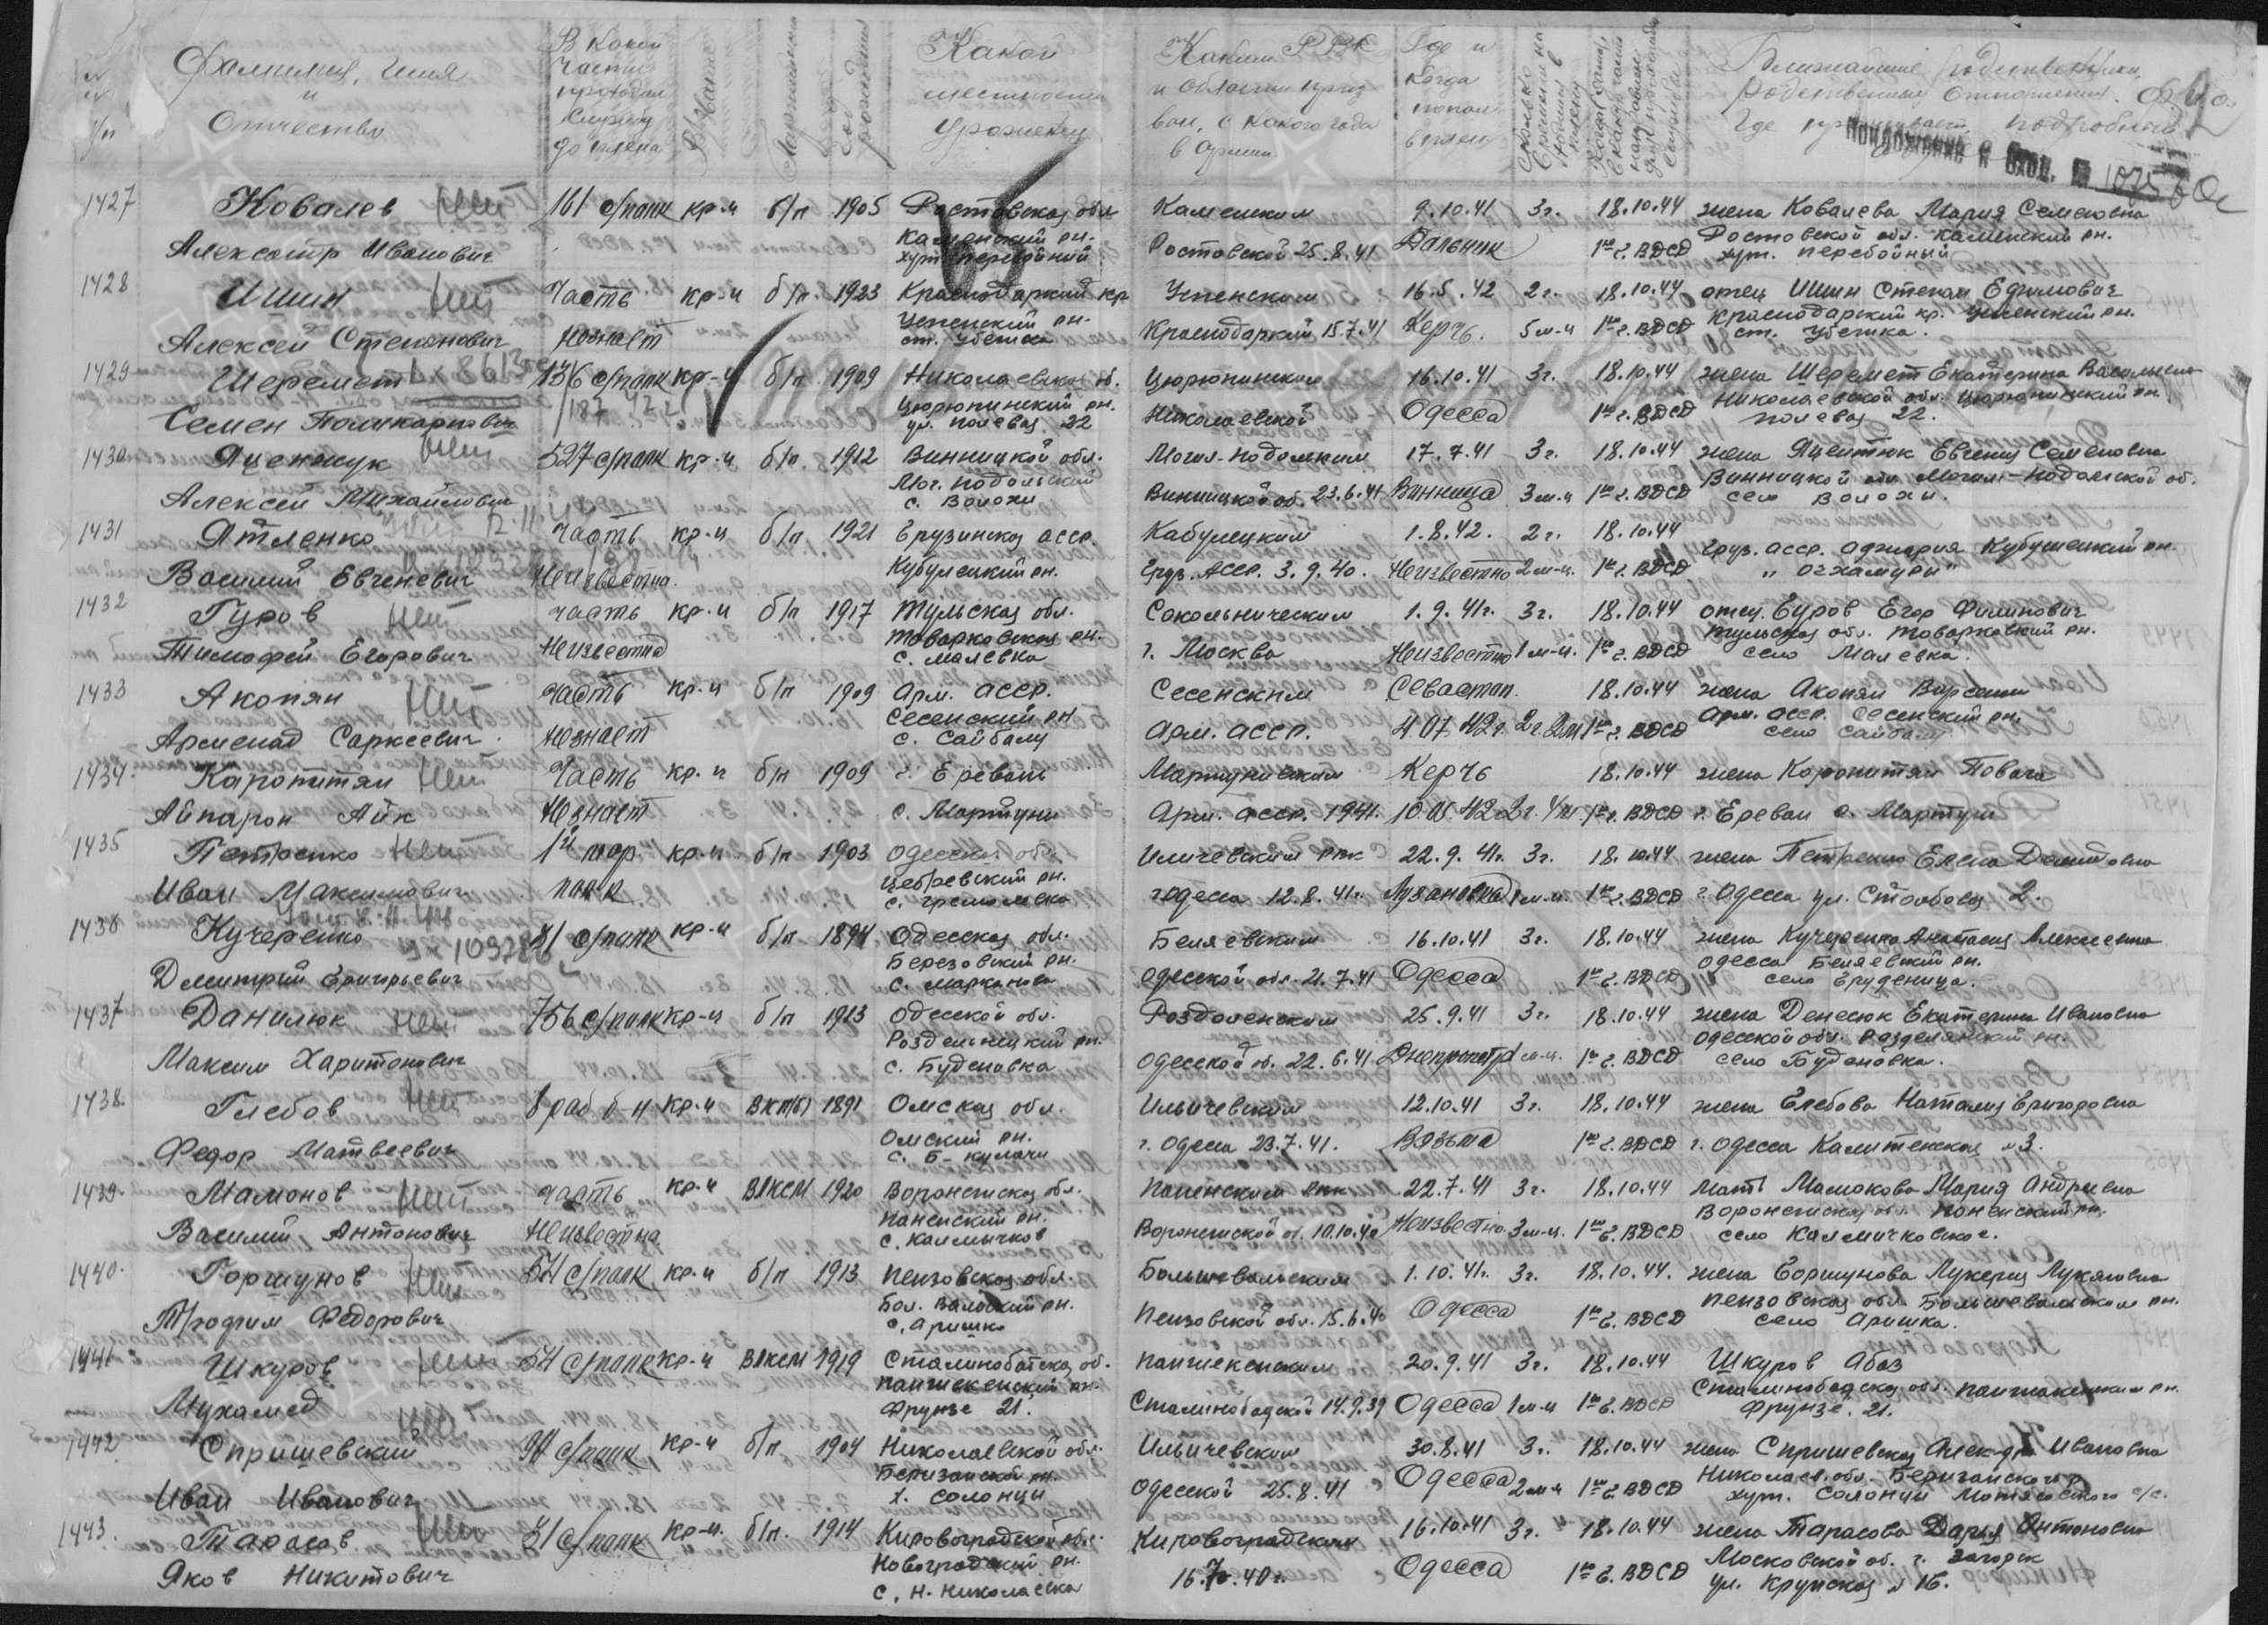 № № п/п
Фамилия, Имя и Отчество
В какой части проходил службу до плена
В/звание
Партийность
год рождения
Какой местности уроженец
Каким РВК и области призван, с какого года в армии
Где и когда попал в плен
Ближайшие родственники, Родственные отношения. Где проживает подробный
Приложение к вход. № 1075
1427 Ковалев нет 161 с/полк кр-ц б/п 1905 Ростовская обл Каменским 9.10.41 3г. 18.10.44 жена Ковалева Мария Семеновна
Александр Иванович Каменский рн. хут. Перебойный Ростовской 25.8.41 Дальник 1ая г. ВДСД Ростовской обл. Каменский рн. хут. Перебойный
1428 Ишин нет Часть кр-ц б/п. 1923 Краснодаркий кр Успенским 16.5.42 2г. 18.10.44 отец Ишин Степан Ефимович
Алексей Степанович Незнает Успенский рн. ст. Убешка Краснодаркий 15.7.41 Керчь. 5 м-ц 1ая г. ВДСД Краснодарский кр. Успенский рн. ст. Убешка.
1429 Шеремет 136 с/полк кр-ц б/п. 1909 Николаевская об. Цюрюпинским 16.10.41 3г. 18.10.44 жена Шеремет Екатерина Васильевна
Семен Поликарпович Цюрюпинский рн. ул. Полевая 22 Николаевской Одесса 1ая г. ВДСД Николаевской обл. Цюрюпинский рн полевая 22.
1430 Яценжук нет 527 с/полк кр-ц б/п. 1912 Винницкой обл. Могил-Подольским 17.7.41 3г. 18.10.44 жена Яцентюк Евгения Семеновна
Алексей Михайлович Мог. Подольский с. Волохи Винницкой об. 23.6.41 Винница 3 м-ц 1ая г. ВДСД Винницкой обл Могил-Подольской об. село Волохи.
1431 Ятленко часть кр-ц б/п 1921 Грузинская асср. Кабулецким 1.8.42. 2г. 18.10.44
Василий Евгеневич Неизвестна. Кубулецкий рн. Груз. Асср. 3.9.40. Неизвестно 2 м-ц. 1ая г. ВДСД Груз. асср. аджария Кубушецкий рн. „Огхамури"
1432 Гуров нет часть кр-ц б/п 1917 Тульская обл. Сокольническим 1.9.41г. 3г. 18.10.44 отец Гуров Егор Филипович
Тимофей Егорович Неизвестна Товарковская рн. с. Малевка г. Москва Неизвестно 1 м-ц. 1ая г. ВДСД Тульская обл. Товарковский рн. село Малевка.
1433 Акопян нет часть кр-ц б/п 1909 Арм. асср. Сесенским Севастоп. 18.10.44 жена Акопян
Арменад Сарксевич. Незнает Сесенский рн с. Сайбалу Арм. асср. 4 07 42г 2г. 2м 1ая г. ВДСД Арм. асср. Сесенский рн. село
1434 Каропитян нет Часть кр-ц б/п 1909 г. Еревань Мартунинским Керчь 18.10.44 жена Каропитян
Айпарон Айк Незнает с. Мартуни Арм. асср. 1941. 10.05.42 2г. 1ая г. ВДСД г. Ереван с. Мартуни
1435 Петренко нет 1й мор кр-ц б/п 1903 Одесская обл. Иличевским рвк 22.9.41г. 3г. 18.10.44 жена Петренко Елена
Иван Максимович полк Цебревский рн. с. г одесса 12.8.41г. Лузановка 1 м-ц. 1ая г. ВДСД г. Одесса ул. Столбовая 2.
1436 Кучеренко 31 с/полк кр-ц б/п 1894 Одесская обл. Беляевским 16.10.41 3г. 18.10.44 жена Кучеренко Анастасия Алексеевна
Дмитрий Григорьевич Березовский рн. с. Марканова Одесской обл. 21.7.41 Одесса 1ая г. ВДСД Одесса Беляевский рн. село Груденица.
1437 Данилюк нет 756 с/полк кр-ц б/п 1913 Одесской обл. Роздоленским 25.9.41 3г. 18.10.44 жена Денесюк Екатерина Ивановна
Максим Харитонович Роздельницкий рн. с. Буденовка Одесской об. 22.6.41 Днепропетр 1 м-ц. 1ая г. ВДСД Одесской обл. Разделянский рн. село Буденовка.
1438 Глебов нет 8 раб б-н кр-ц ВКП(б) 1891 Омская обл. Ильичевским 12.10.41 3г. 18.10.44 жена Глебова Наталия Григоровна
Федор Матвеевич Омский рн. с. Б-Кулачи г. Одесса 23.7.41. Вязьма 1ая г. ВДСД г. Одесса Калитенская №3.
1439. Мамонов нет часть кр-ц ВЛКСМ 1920 Воронежская обл. Паненским рвк 22.7.41 3г. 18.10.44 мать Мамокова Мария Андреевна
Василий Антонович Неизвестна Паненский рн. с. Калмычков Воронежской об. 10.10.40 Неизвестно 3 м-ц. 1ая г. ВДСД Воронежская обл. Поненский рн. село Калмычковское.
1440. Горшунов нет 54 с/полк кр-ц б/п 1913 Пензовская обл. Большевальским 1.10.41г. 3г. 18.10.44. жена Горшунова Лукерия Лукяновна
Трофим Федорович Бол. Валовский рн. с. Аришка Пензовской обл. 15.6.40 Одесса 1ая г. ВДСД Пензовская обл. Большевальским рн. село Аришка.
1441 Шкуров нет 54 с/полк кр-ц ВЛКСМ 1919 Сталинобатская об. Панжекенским 20.9.41 3г. 18.10.44 Шкуров Абаз
Мухамед Панжекенский рн. Фрунзе 21. Сталинободской 14.9.39 Одесса 1 м-ц 1ая г. ВДСД Сталинободская обл. рн. Фрунзе. 21.
1442 Спришевский нет 90 с/полк кр-ц б/п 1904 Николаевской обл. Ильичевским 30.8.41 3г. 18.10.44 жена Спришевская Алек-дра Ивановна
Иван Иванович Беризанской рн. х. Солонци Одесской 25.8.41 Одесса 2 м-ц 1ая г. ВДСД Николаев. обл. Беризанского р. хут. Солонци с/с.
1443. Тарасов нет 31 с/полк кр-ц. б/п. 1914 Кировоградской обл. Кировоградским 16.10.41 3г. 18.10.44 жена Тарасова Дарья Антоновна
Яков Никитович Новоградский рн. с. Н. Николаевка 16.7.40г. Одесса 1ая г. ВДСД Московской об. г. Загорск ул. Крупская № 16.